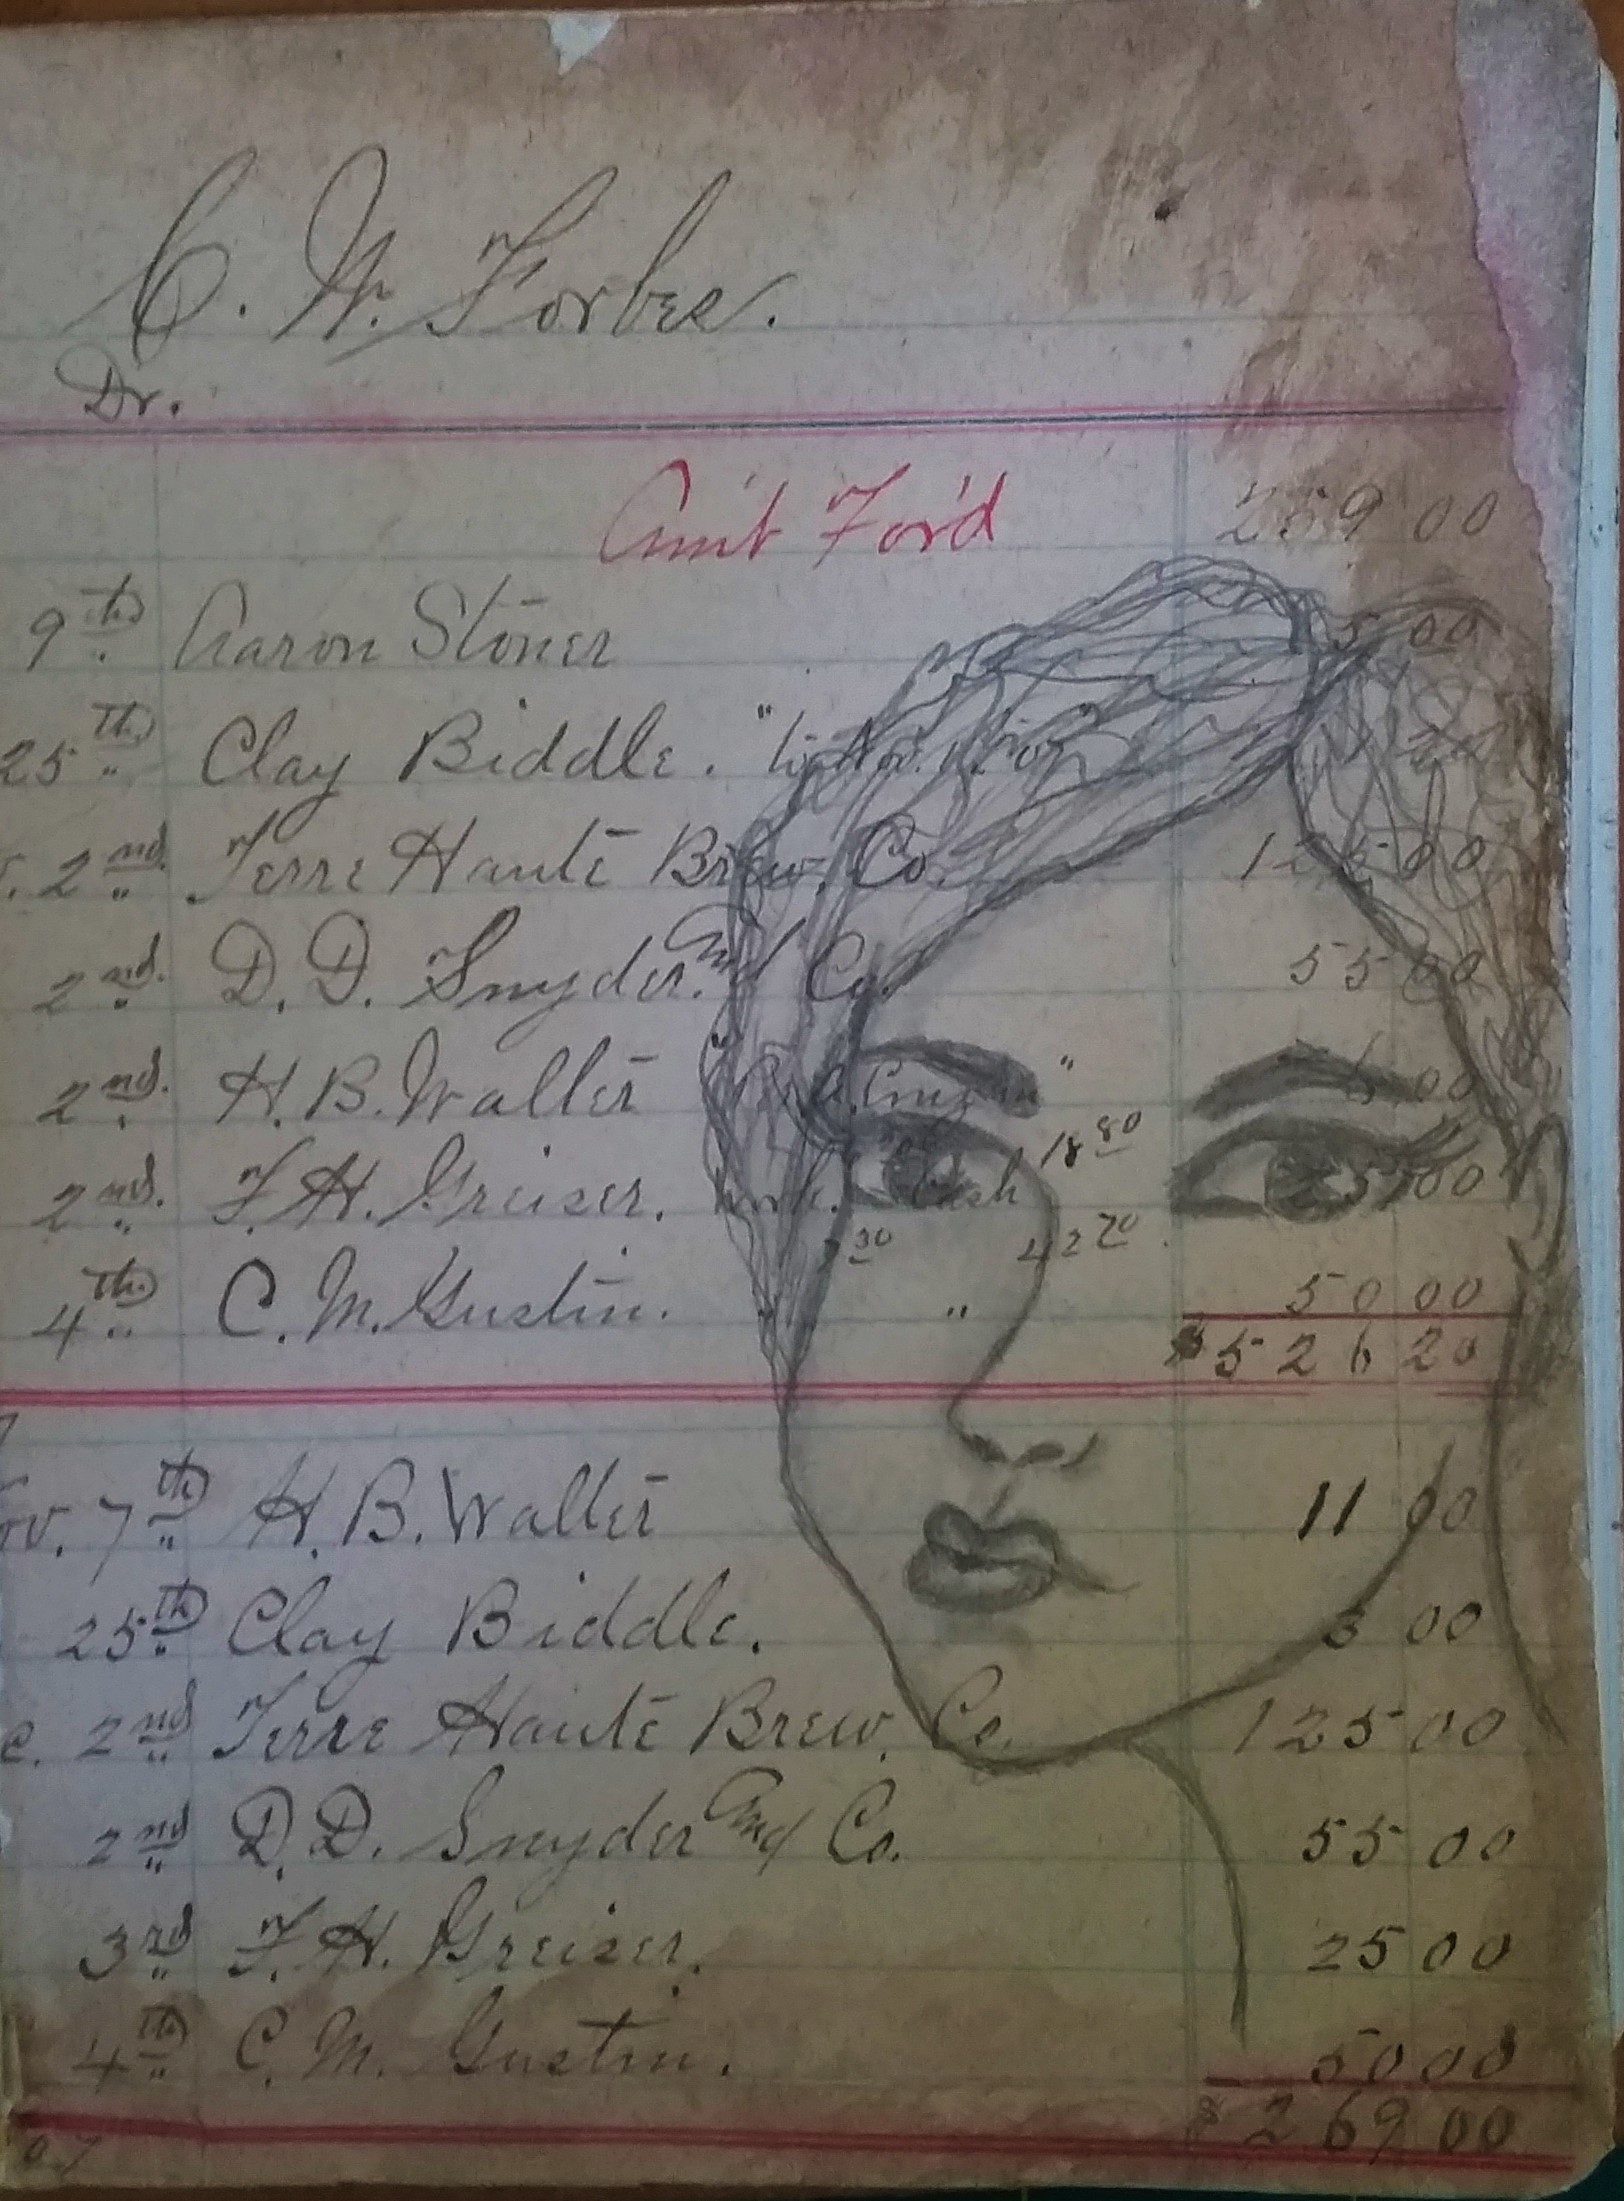 C. W. Forbes.
Dr.
Am't For'd 259 00
9th Aaron Stoner 5 00
25th Clay Biddle.
2nd Terre Haute Brew. Co. 125 00
2nd D. D. Snyder and Co. 55 00
2nd H. B. Walter 6 00
18 80
2nd F. H. Greiser. Cash 25 00
42 70
4th C. M. Gustin. " " 50 00
$526 20
7th H. B. Walter 11 00
25th Clay Biddle. 3 00
2nd Terre Haute Brew. Co. 125 00
2nd D. D. Snyder and Co. 55 00
3rd F. H. Greiser. 25 00
4th C. M. Gustin. 50 00
$269 00